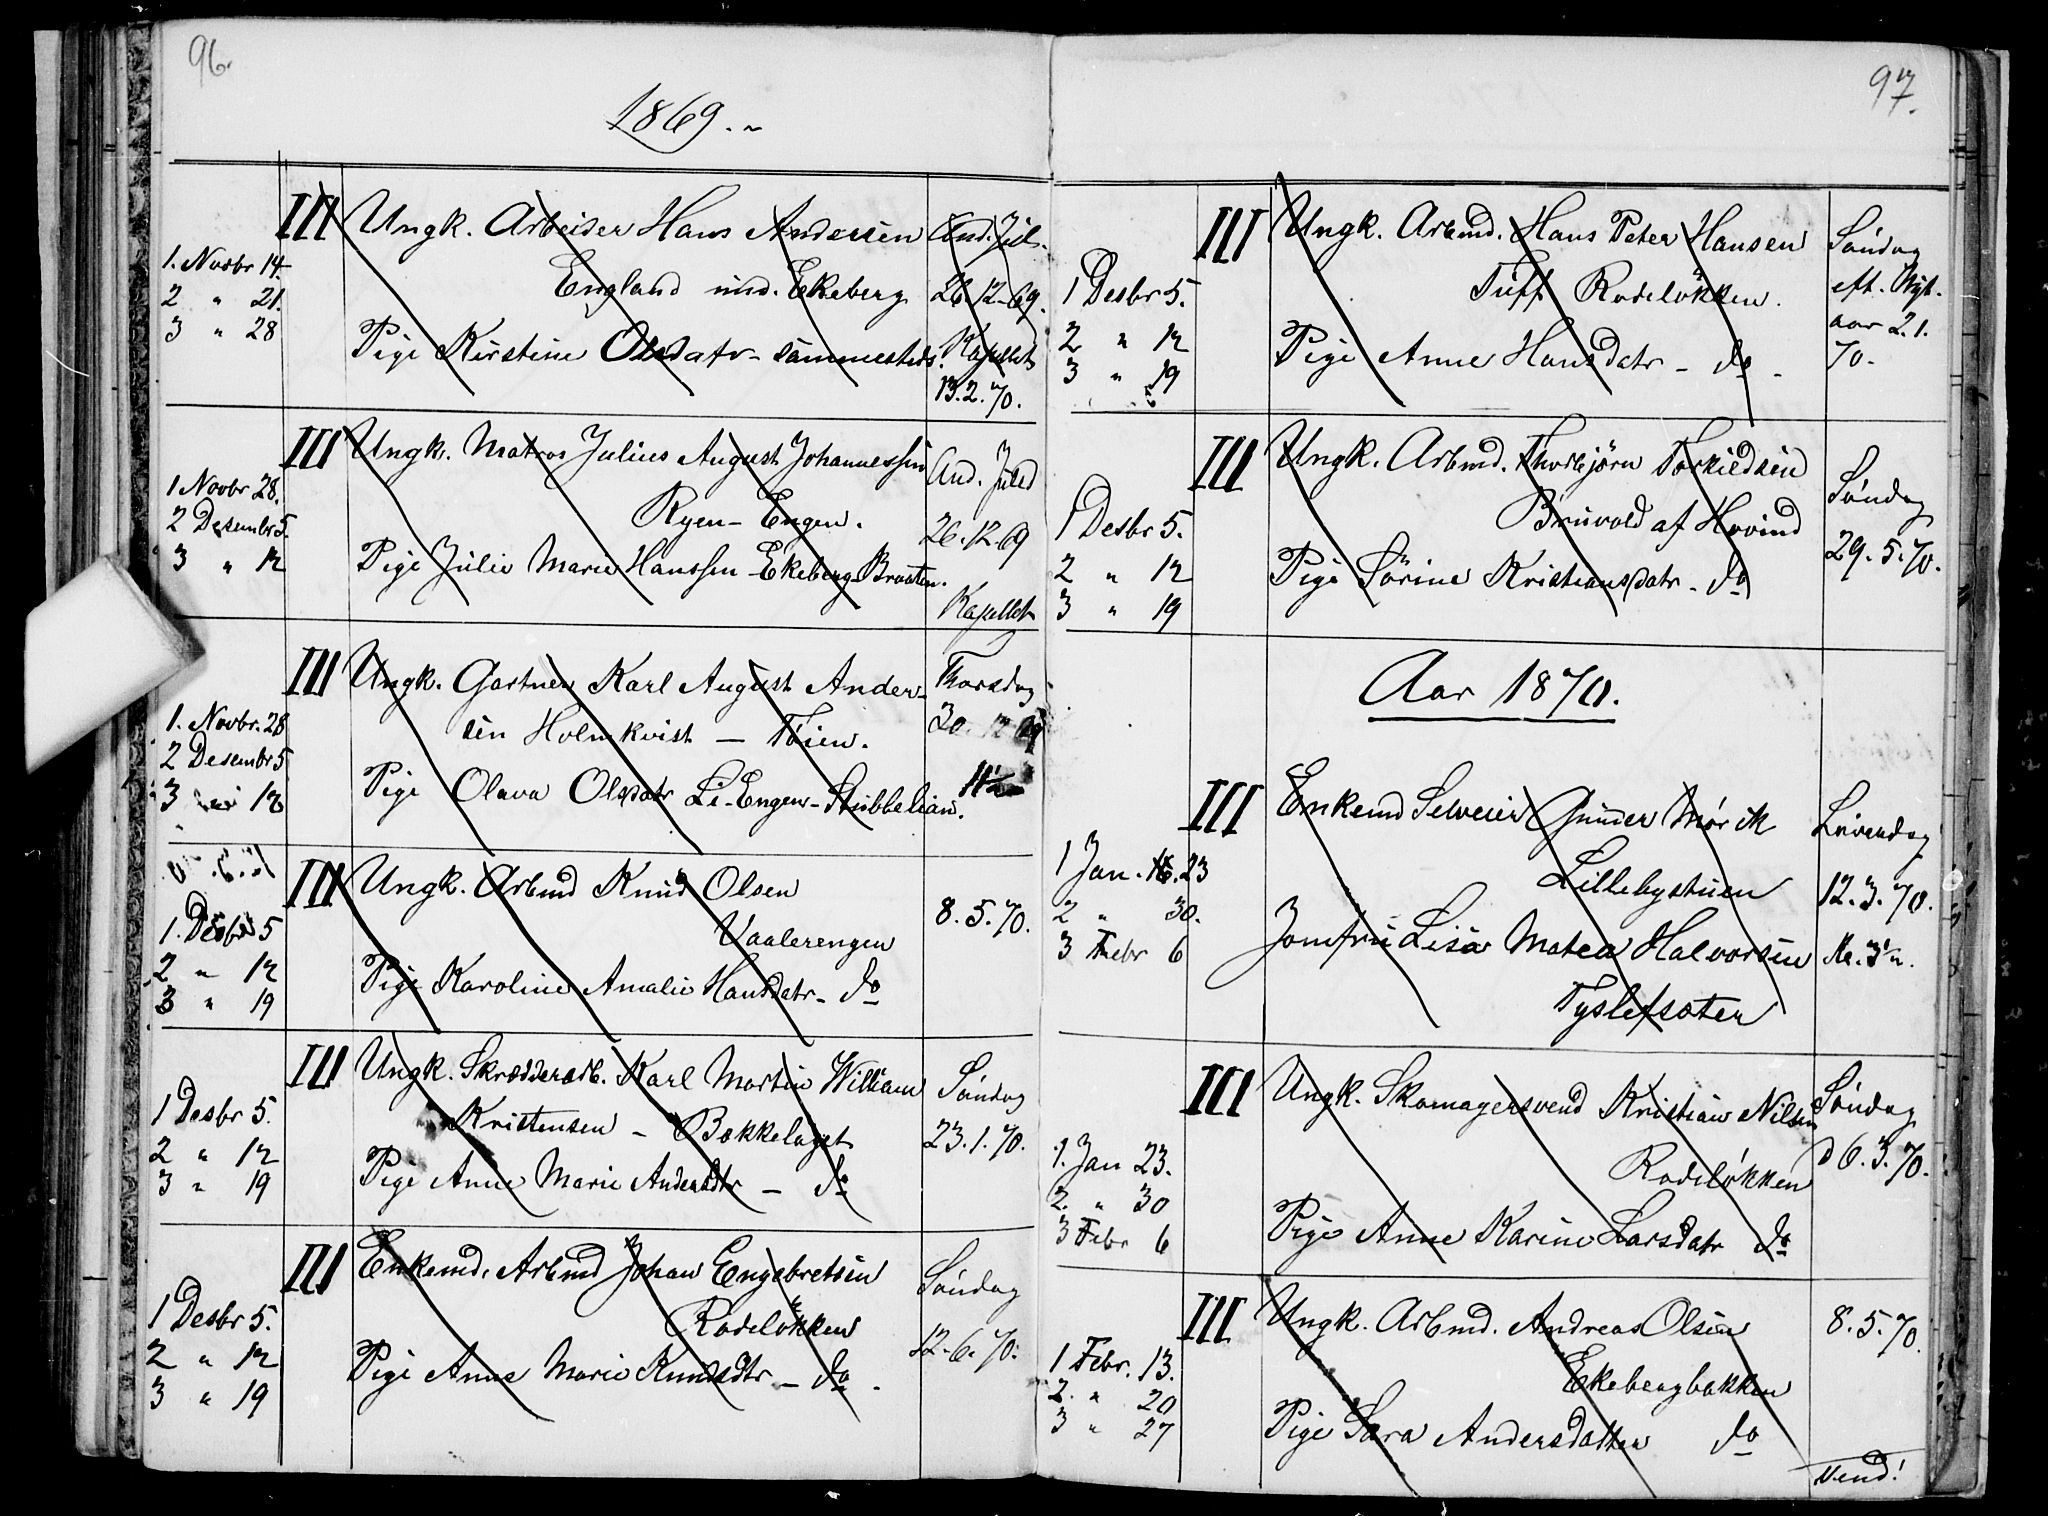 96.
1869.
III Ungk. Arbeider Hans Andersen And. Jul.
1. Novbr 14. England und. Ekeberg 26.12.69.
2 " 21.
3 " 28 Pige Kirstine Olsdatr - sammesteds. Kapellet
13.2.70.
III Ungk. Matros Julius August Johannessen And. Juled
1 Novbr 28. Ryen - Engen. 26.12.69
2 Desembr 5.
3 " 12 Pige Julie Marie Hanssen - Ekeberg Braaten.
Kapellet
III Ungk. Gartner Karl August Ander- Thorsdag
1. Novbr. 28 sen Holmkvist - Töien. 30. 12 69
2 Desembr 5
3 12 Pige Olava Olsdatr Li-Engen - Stubbelian. 11½
III Ungk. Arbmd Knud Olsen
1. Desbr 5 Vaalerengen 8.5.70.
2 " 12 Pige Karoline Amalie Hansdatr - do
3 " 19
III Ungk. Skrædderarb. Karl Martin William Söndag
1 Desbr 5. Kristensen - Bækkelaget 23.1.70.
2 " 12 Pige Anne Marie Andersdtr - do
3 " 19
III Enkemd. Arbmd Johan Engebretsen Söndag
1 Desbr 5. Rodelökken
2 " 12 Pige Anne Marie Knudsdtr - do. 12.6.70.
3 " 19
97.
III Ungk. Arbmd. Hans Peter Hansen Söndag
1 Desbr 5. Tuff Rodelökken. eft. Nyt-
2 " 12 aar 2.1.
3 " 19 Pige Anne Hansdatr - do - 70.
III Ungk. Arbmd. Thorbjörn Torkildsen Söndag
1 Desbr 5. Bruvold af Hovind 29.5.70.
2 " 12 Pige Sörine Kristiansdatr - do
3 " 19
Aar 1870.
III Enkemd Selveier Gunder Mörck Löverdag
1 Jan. 23 Lillebystuen 12.3.70.
2 " 30.
3 Febr 6 Jomfru Lisa Matea Halvorsen Kl. 3½.
Tyslefsæter
III Ungk. Skomagersvend Kristian Nilsen Söndag
1. Jan 23. Rodelökken d 6.3.70.
2. " 30
3 Febr 6 Pige Anne Karine Larsdatr do
III Ungk. Arbmd. Andreas Olsen 8.5.70.
1 Febr. 13. Ekebergbakken
2. " 20
3 " 27 Pige Sara Andersdatter do
Vend!